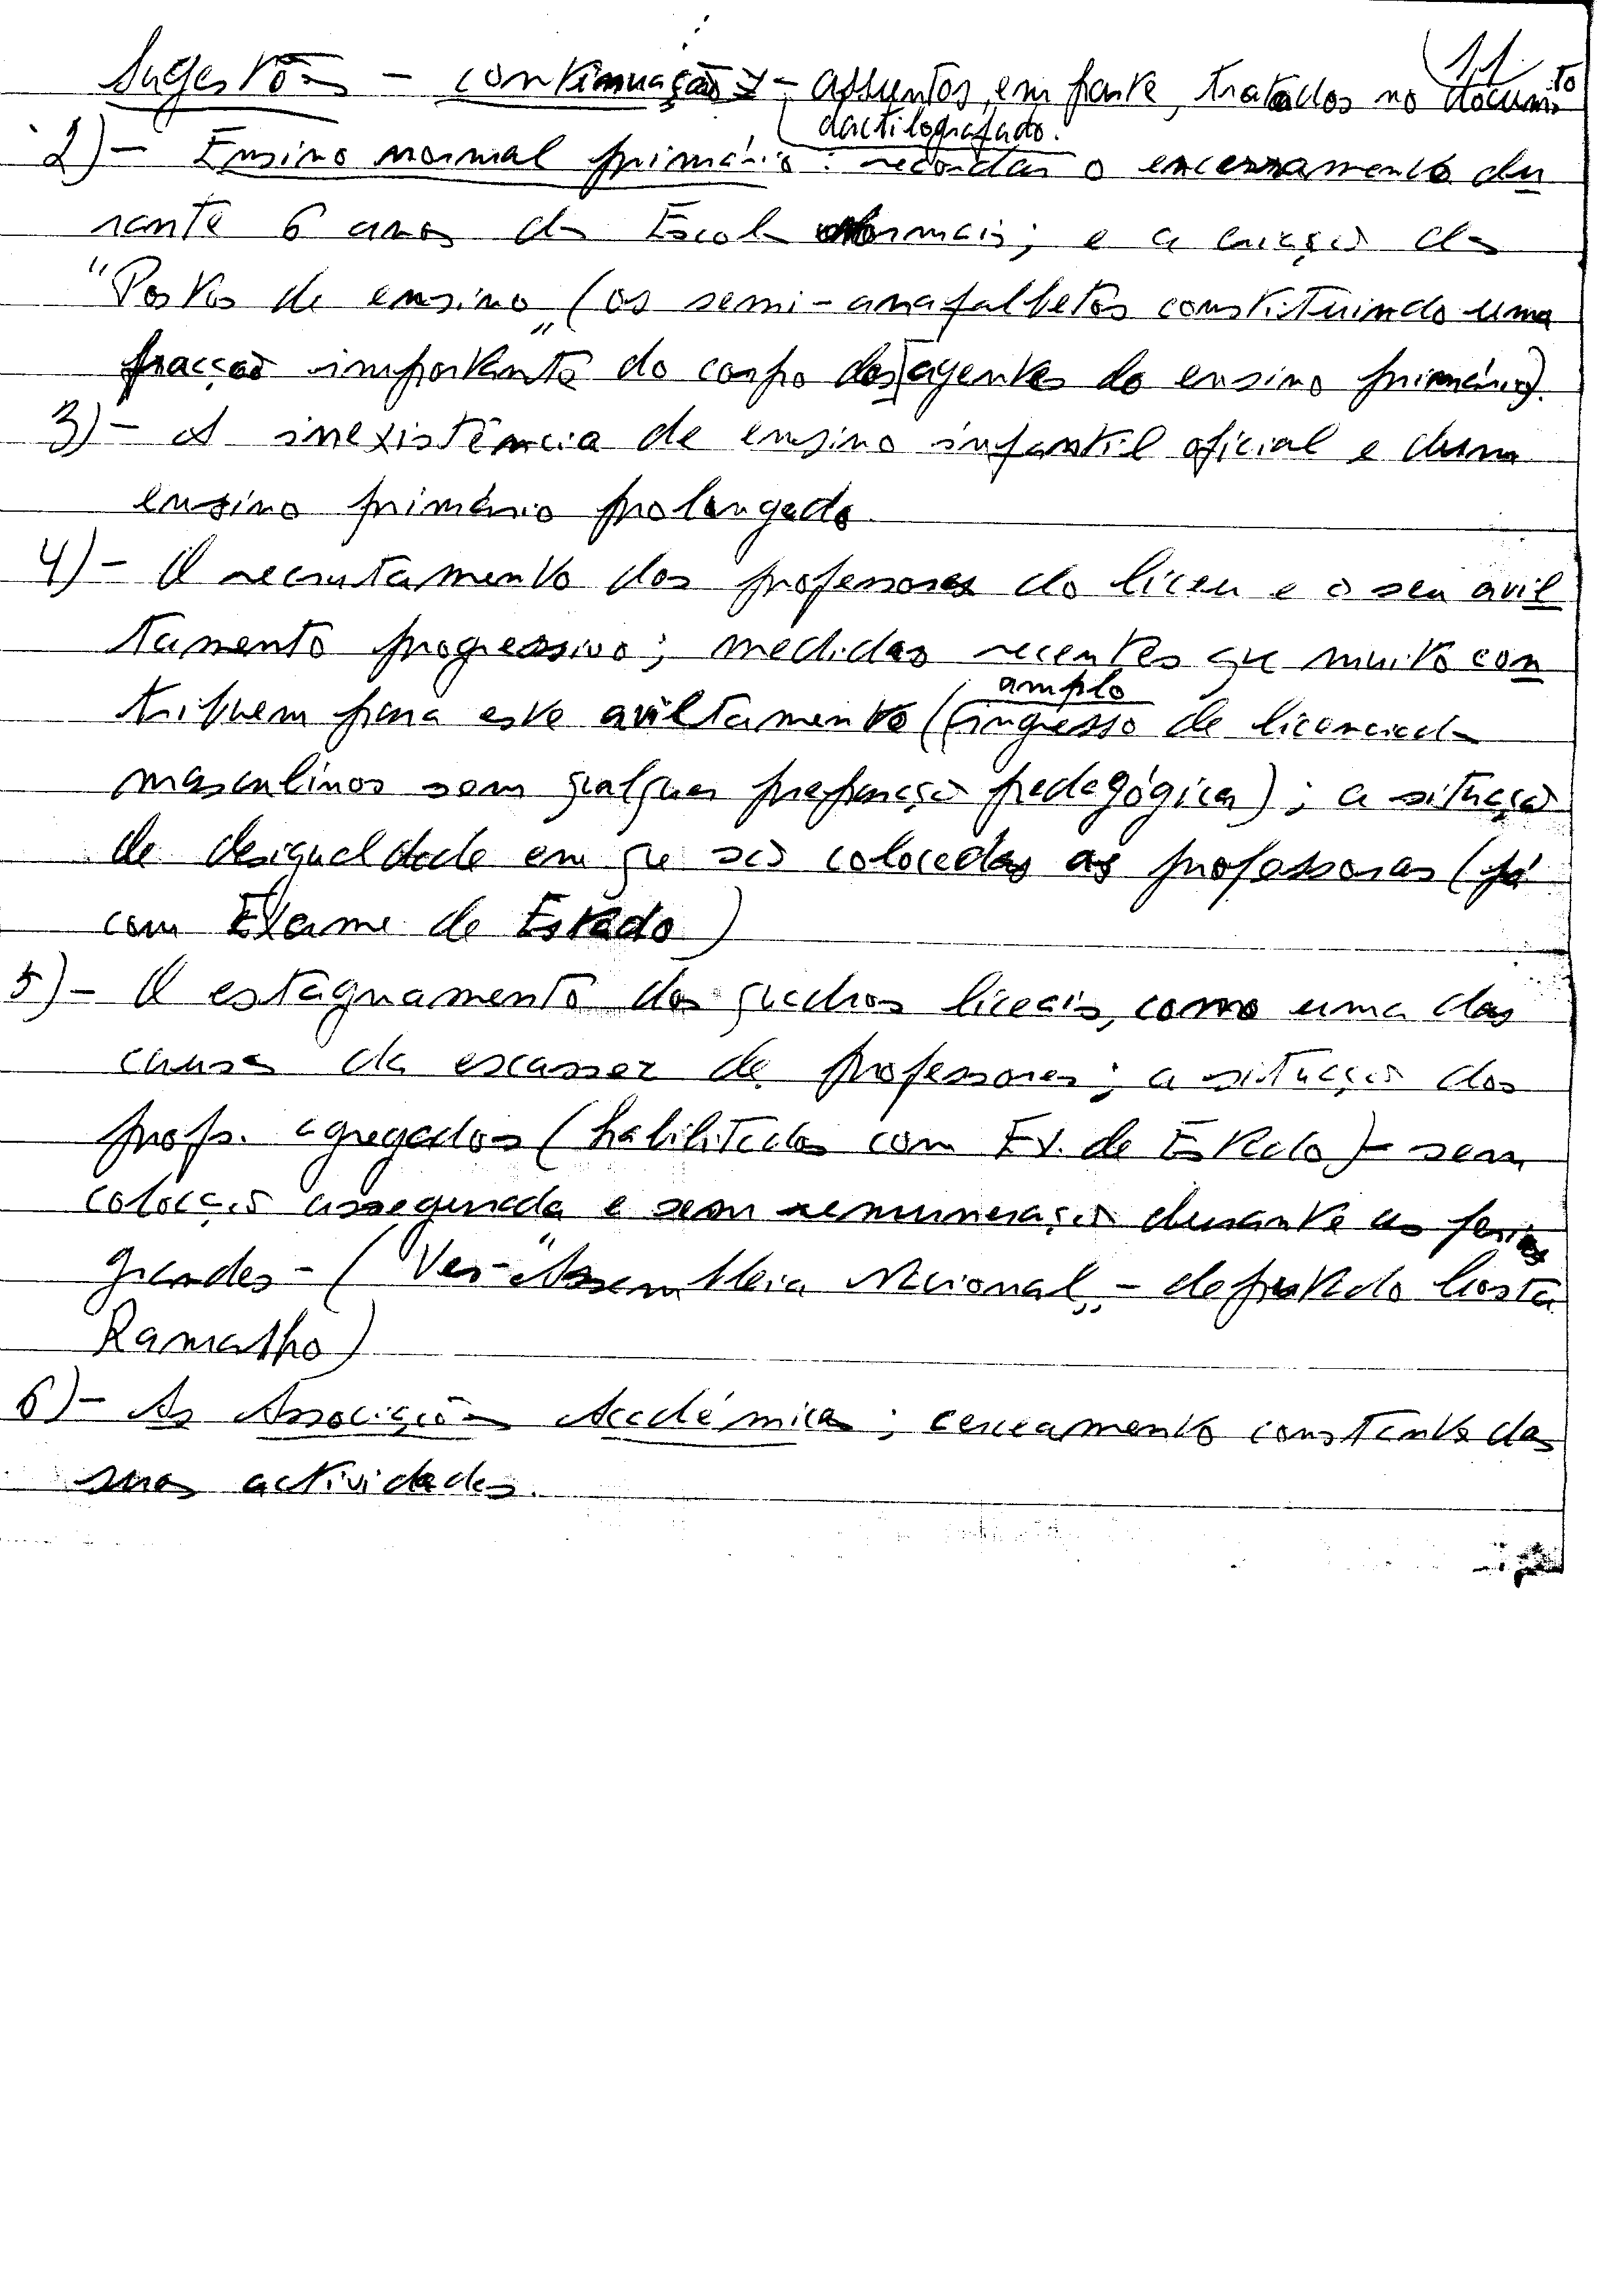 11
Sugestões - continuação - assuntos, em parte, tratados no documto
dactilografado.
2) - Ensino normal primário: recordar o encerramento du
rante 6 anos das Escolas Normais; e a criação dos
"Postos de ensino" (os semi-anafalbetos constituindo uma
fracção importante do corpo dos agentes do ensino primário).
3) - A inexistência de ensino infantil oficial e dum
ensino primário prolongado
4) - O recrutamento dos professores do liceu e o seu avil
tamento progressivo; medidas recentes que muito con
tribuem para este aviltamento (amplo ingresso de licenciados
masculinos sem qualquer preparação pedagógica); a situação
de desigualdade em que são colocadas as professoras (já
com Exame de Estado)
5) - O estagnamento dos quadros liceais, como uma das
causas da escassez de professores; a situação dos
profs. agregados (habilitados com Ex. de Estado) - sem
colocação assegurada e sem remuneração durante as ferias
grandes - (Ver - "Assembleia Nacional" - deputado Costa
Ramalho)
6) - As Associações Académicas; cerceamento constante das
suas actividades.